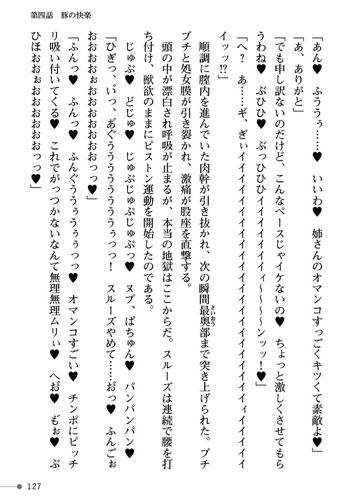 第四話　豚の快楽
「あん♥　ふううぅ……♥　いいわ♥　姉さんのオマンコすっごくキツくて素敵よ♥」
「あ、ありがと」
「でも申し訳ないのだけど、こんなペースじゃイケないの♥　ちょっと激しくさせてもら
うわね♥　ぶひひ♥　ぶっひひひイイイイイィィ～～～～ンッッ！♥」
「へ？　あ……ギ、ぎぃイイイイイイイイイイイイイイイイイイイイイイイィイイイイ
イィッッ!?」
　順調に膣内を進んでいた肉幹が引き抜かれ、次の瞬間最奥部まで突き上げられた。ブチ
さいおう
ブチと処女膜が引き裂かれ、激痛が股座を直撃する。
　頭の中が漂白され呼吸が止まるが、本当の地獄はここからだ。スルーズは連続で腰を打
ち付け、獣欲のままにピストン運動を開始したのである。
　じゅぷ♥　どじゅ♥　じゅぷじゅぷじゅぷっ♥　ヌプ、ぱちゅん♥　パンパンパン♥
「ひぎっ、いっ、あぐううううううぅっっ！　スルーズやめて……おっ♥　ふんごぉ
おおおおおおおおおおぉおおおっっ♥」
「ふんっ♥　ふんっ♥　ふんぐううぅぅっっ♥　オマンコすごい♥　チンポにピッチ
リ吸い付いてくる♥　これでがっつかないなんて無理無理ムリぃ♥　へお♥　もぉ♥　ぶ
ひほおおぉおおおおおおおおっっ♥」
127